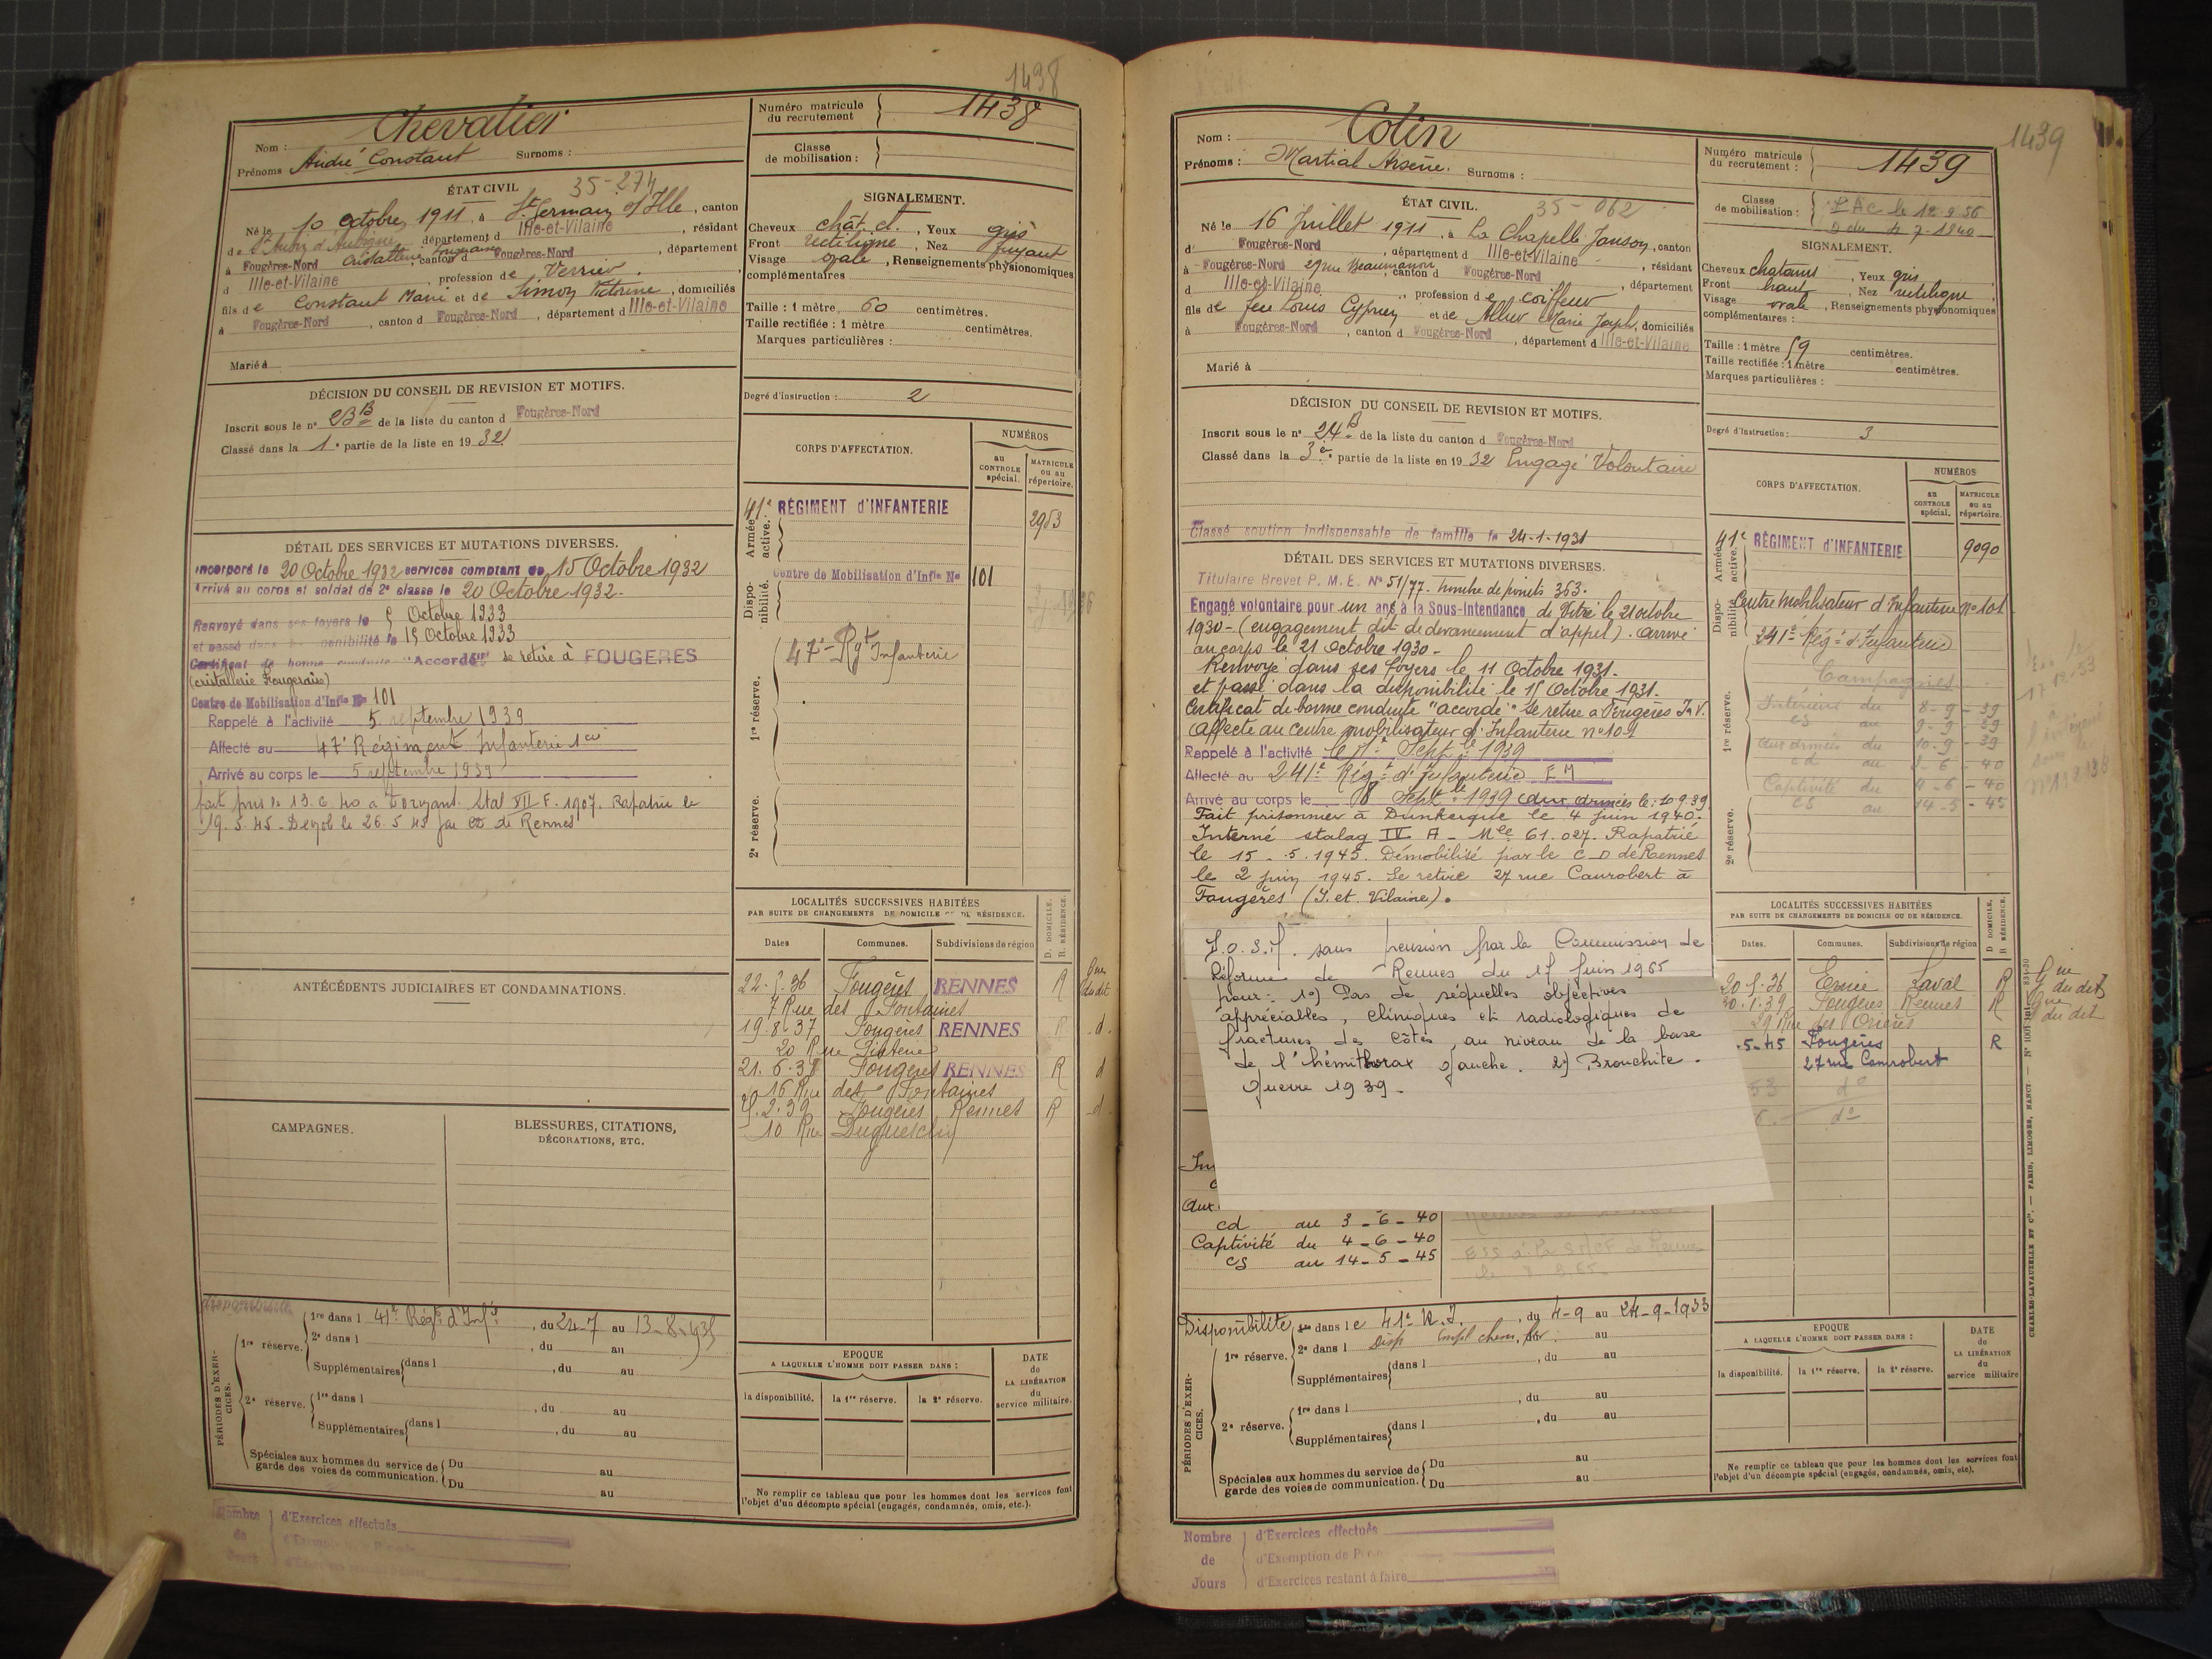 1438
Nom : Chevalier
Prénoms André Constant Surnoms :
Numéro matricule du recrutement 1438
Classe de mobilisation :
ÉTAT CIVIL 35-274
Né le 10 octobre 1911, à St Germain s/ Ille, canton
de St Aubin d'Aubigné, département d Ille-et-Vilaine, résidant
à Fougères-Nord Cristallerie Fougeraise, canton d Fougères-Nord, département
d Ille-et-Vilaine, profession de Verrier,
fils de Constant Marie et de Simon Victorine, domiciliés
à Fougères-Nord, canton d Fougères-Nord, département d Ille-et-Vilaine
Marié à
SIGNALEMENT.
Cheveux chât. cl., Yeux gris
Front rectiligne, Nez fuyant
Visage ovale, Renseignements physionomiques
complémentaires
Taille : 1 mètre, 60 centimètres.
Taille rectifiée : 1 mètre centimètres.
Marques particulières :
Degré d'instruction : 2
DÉCISION DU CONSEIL DE REVISION ET MOTIFS.
Inscrit sous le n° 23 B de la liste du canton d Fougères-Nord
Classé dans la 1e partie de la liste en 1932
CORPS D'AFFECTATION.
NUMÉROS
au CONTROLE spécial.
MATRICULE ou au répertoire.
Armée active.
41e RÉGIMENT d'INFANTERIE 2953
Disponibilité.
Centre de Mobilisation d'Infie No 101
1re réserve.
47e Rgt Infanterie
2e réserve.
DÉTAIL DES SERVICES ET MUTATIONS DIVERSES.
Incorporé le 20 Octobre 1932 services comptant du 15 Octobre 1932
Arrivé au corps et soldat de 2e classe le 20 Octobre 1932.
Renvoyé dans ses foyers le 5 Octobre 1933
et passé dans la disponibilité le 15 Octobre 1933
Certificat de bonne conduite "Accordé" se retire à FOUGERES
(cristallerie Fougeraise)
Centre de Mobilisation d'Infie No 101
Rappelé à l'activité 5 septembre 1939
Affecté au 47e Régiment Infanterie
Arrivé au corps le 5 septembre 1939
fait pris le 13.6.40 à Stal VII F. 1907. Rapatrié le
19.5.45 - Demob le 26.5.45 par CD de Rennes
ANTÉCÉDENTS JUDICIAIRES ET CONDAMNATIONS.
CAMPAGNES.
BLESSURES, CITATIONS, DÉCORATIONS, ETC.
LOCALITÉS SUCCESSIVES HABITÉES
PAR SUITE DE CHANGEMENTS DE DOMICILE OU DE RÉSIDENCE.
Dates Communes. Subdivisions de région D. DOMICILE. R. RÉSIDENCE.
Fougères RENNES R
7 Rue des Fontaines
19.8.37 Fougères RENNES R d
20 Rue
21.6.38 Fougères RENNES R d
16 Rue des Fontaines
Fougères Rennes R d
10 Rue Duguesclin
PÉRIODES D'EXERCICES.
disponibilité
1re réserve. 1re dans l 41e Régt d'Infie, du 24-7 au 13-8-1935
2e dans l , du au
Supplémentaires dans l , du au
2e réserve. 1re dans l , du au
Supplémentaires dans l , du au
Spéciales aux hommes du service de garde des voies de communication. Du au
Du au
EPOQUE
A LAQUELLE L'HOMME DOIT PASSER DANS :
la disponibilité. la 1re réserve. la 2e réserve.
DATE de LA LIBÉRATION du service militaire.
Ne remplir ce tableau que pour les hommes dont les services font
l'objet d'un décompte spécial (engagés, condamnés, omis, etc.).
Nombre de Jours
d'Exercices effectués
1439
Nom : Colin
Prénoms : Martial Arsène. Surnoms :
Numéro matricule du recrutement : 1439
Classe de mobilisation :
ÉTAT CIVIL. 35-062
Né le 16 Juillet 1911, à La Chapelle Janson, canton
d' Fougères-Nord, département d Ille-et-Vilaine, résidant
à Fougères-Nord 29 rue Beaumanoir, canton d Fougères-Nord, département
d Ille-et-Vilaine, profession de coiffeur
fils de feu Louis Cyprien et de Marie Joseph, domiciliés
à Fougères-Nord, canton d Fougères-Nord, département d Ille-et-Vilaine
Marié à
SIGNALEMENT.
Cheveux chatains, Yeux gris,
Front haut, Nez rectiligne,
Visage ovale, Renseignements physionomiques
complémentaires :
Taille : 1 mètre 59 centimètres.
Taille rectifiée : 1 mètre centimètres.
Marques particulières :
Degré d'instruction : 3
DÉCISION DU CONSEIL DE REVISION ET MOTIFS.
Inscrit sous le n° 24 B de la liste du canton d Fougères-Nord
Classé dans la 3e partie de la liste en 1932 Engagé Volontaire
Classé soutien indispensable de famille le 24-1-1931
CORPS D'AFFECTATION.
NUMÉROS
au CONTROLE spécial.
MATRICULE ou au répertoire.
Armée active.
41e RÉGIMENT d'INFANTERIE 9090
Disponibilité
Centre mobilisateur d'Infanterie n° 101
1re réserve.
241e Régt d'Infanterie
Campagnes
Intérieur du 8-9-39
CS au 9-9-39
aux armées du 10-9-39
cd au 3-6-40
Captivité du 4-6-40
CS au 14-5-45
2e réserve.
DÉTAIL DES SERVICES ET MUTATIONS DIVERSES.
Titulaire Brevet P. M. E. N° 51/77. nombre de points 363.
Engagé volontaire pour un ans à la Sous-Intendance de Vitré le 21 octobre
1930 - (engagement dit de devancement d'appel). arrivé
au corps le 21 octobre 1930 -
Renvoyé dans ses foyers le 11 Octobre 1931.
et passé dans la disponibilité le 15 Octobre 1931.
Certificat de bonne conduite "accordé" Se retire à Fougères I. V.
affecté au centre mobilisateur d'Infanterie n° 101
Rappelé à l'activité Septbre 1939
Affecté au 241e Régt d'Infanterie
Arrivé au corps le 8 Septbre 1939 aux armées le : 10.9.39
Fait prisonnier à Dunkerque le 4 juin 1940.
Interné stalag IV A - Mle 61.027. Rapatrié
le 15 . 5 . 1945. Démobilisé par le C D de Rennes
le 2 juin 1945. Se retire 27 rue Canrobert à
Fougères (I. et. Vilaine).
sans pension par la Commission de
Réforme de Rennes du 15 Juin 1965
pour : 1°) Pas de séquelles objectives
appréciables, cliniques et radiologiques de
fractures des côtes, au niveau de la base
de l'hémithorax gauche. 2°) Bronchite.
guerre 1939 -
Aux
cd au 3-6-40
Captivité du 4-6-40
CS au 14-5-45
LOCALITÉS SUCCESSIVES HABITÉES
PAR SUITE DE CHANGEMENTS DE DOMICILE OU DE RÉSIDENCE.
Dates. Communes. Subdivisions de région D DOMICILE, R RÉSIDENCE.
Ernée Laval R
Fougères Rennes R
5-45 Fougères R
27 rue Canrobert
53 do
do
PÉRIODES D'EXERCICES.
Disponibilité 1re dans le 41e R.I., du 4-9 au 24-9-1933
1re réserve. 2e dans l au
Supplémentaires dans l , du au
, du au
2e réserve. 1re dans l , du au
Supplémentaires dans l
Spéciales aux hommes du service de garde des voies de communication. Du au
Du au
EPOQUE
A LAQUELLE L'HOMME DOIT PASSER DANS :
la disponibilité. la 1re réserve. la 2e réserve.
DATE de LA LIBÉRATION du service militaire
Ne remplir ce tableau que pour les hommes dont les services font
l'objet d'un décompte spécial (engagés, condamnés, omis, etc).
CHARLES-LAVAUZELLE ET Cie. — PARIS, LIMOGES, NANCY.
Nombre de Jours
d'Exercices effectués
d'Exemption de
d'Exercices restant à faire